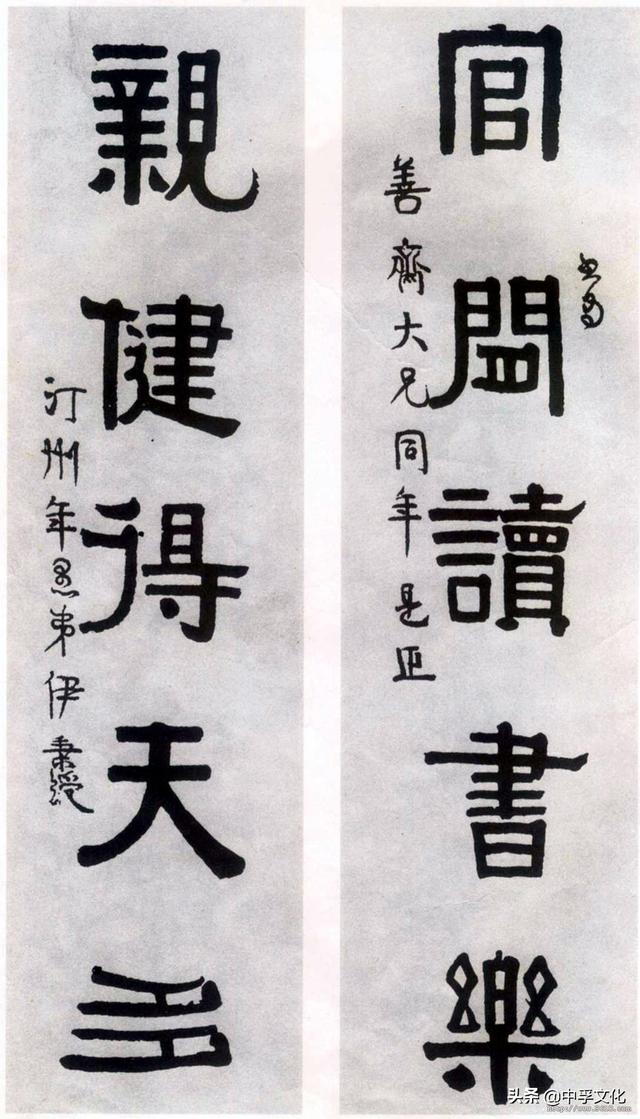 書為
官閒讀書樂
善齋大兄同年是正
親健得天多
汀州年愚弟伊秉綬
头条 @中孚文化